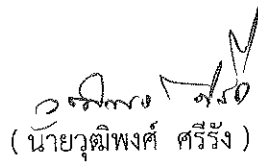 ( นายวุฒิพงศ์ ศรีรัง )